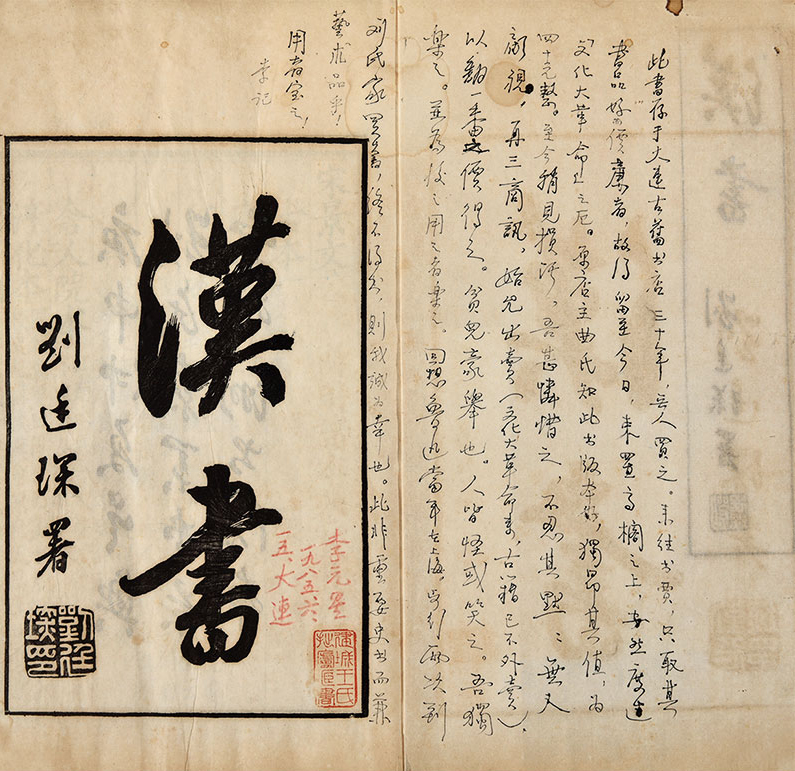 此書存于大連古舊书店三十年,無人買之。来往书賈,只取其
書品好價廉者,故得留至今日,束置高櫊之上,安然度過
「文化大革命」之厄。原店主曲氏知此书版本好,獨昂其值,為
四十元整。至今稍見損污,吾甚憐惜之,不忍其默默無人
顧視,再三商訊,始允出賣(文化大革命来,古籍已不外賣),
以翻一番之價得之。貧兒豪舉也。人皆怪或笑之。吾獨
樂之。並為後之用之者樂之。回想魯迅當年在上海,兩次到
刘氏家買書,終不得見,則我誠为幸也。此非重要史书而兼
藝术品乎!
用者宝之!
李记
漢書
李元星
一九八五六
一五、大連
劉廷琛署
劉廷
琛印